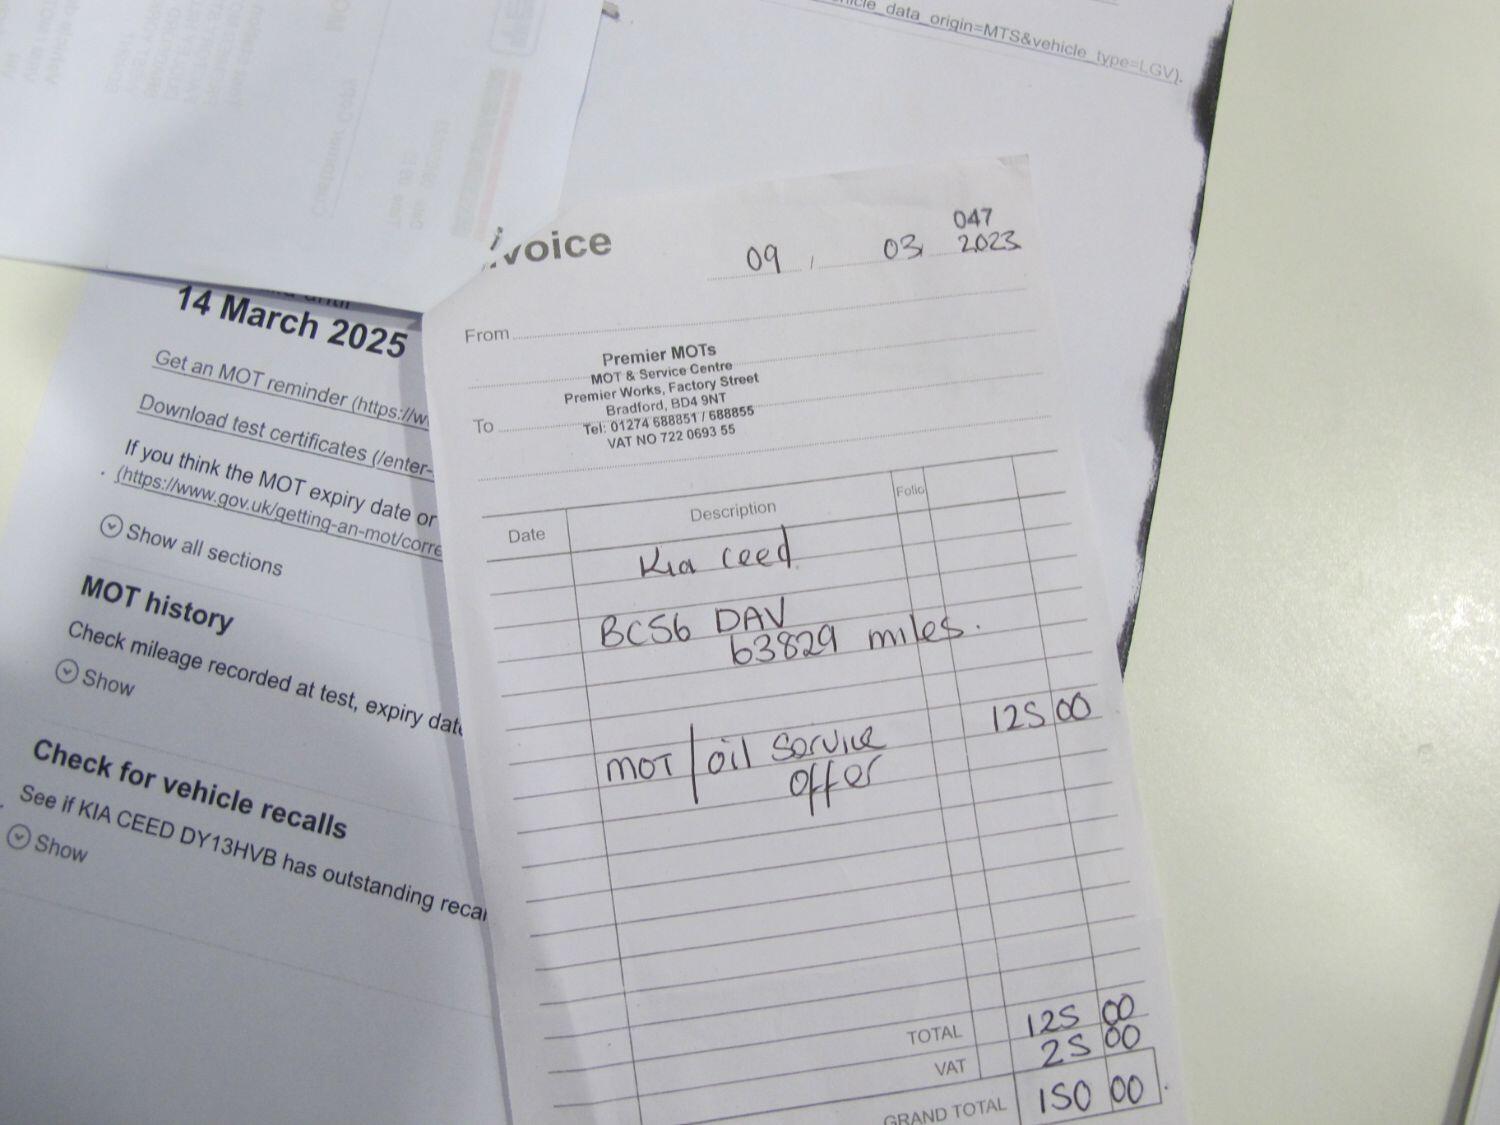 icle_data_origin=MTS&vehicle_type=LGV).
14 March 2025
Get an MOT reminder (https://w
Download test certificates (/enter-
If you think the MOT expiry date or
(https://www.gov.uk/getting-an-mot/corre
Show all sections
MOT history
Check mileage recorded at test, expiry date
Show
Check for vehicle recalls
See if KIA CEED DY13HVB has outstanding recal
Show
voice
047
09 / 03 2023
From
Premier MOTs
MOT & Service Centre
Premier Works, Factory Street
Bradford, BD4 9NT
To
Tel: 01274 688851 / 688855
VAT NO 722 0693 55
Date Description Folio
Kia ceed
BC56 DAV
63829 miles.
MOT / oil service 125 00
offer
TOTAL 125 00
VAT 25 00
GRAND TOTAL 150 00